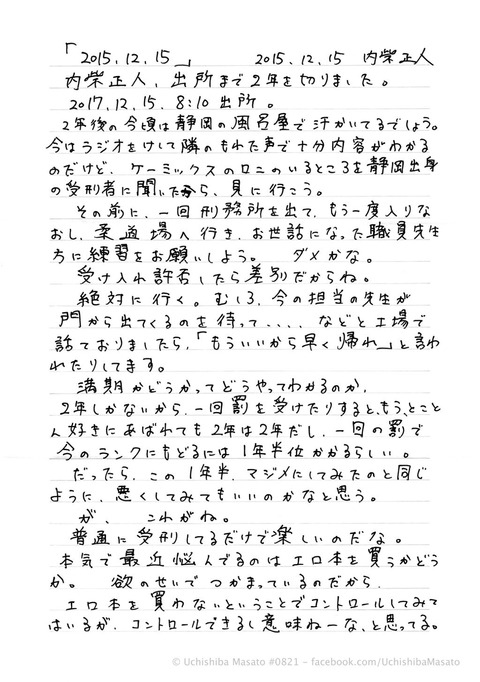 「2015.12.15」　　2015.12.15　内柴正人
内柴正人、出所まで2年を切りました。
2017.12.15.8:10出所。
2年後の今頃は静岡の風呂屋で汗かいてるでしょう。
今はラジオをけして隣のもれた声で十分内容がわかる
のだけど、ケーミックスのロニのいるところを静岡出身
の受刑者に聞いたから、見に行こう。
その前に、一回刑務所を出て、もう一度入りな
おし、柔道場へ行き、お世話になった職員先生
方に練習をお願いしよう。　ダメかな。
受け入れ許否したら差別だからね。
絶対に行く。むしろ、今の担当の先生が
門から出てくるのを待って....などと工場で
話ておりましたら、「もういいから早く帰れ」と言わ
れたりしてます。
満期かどうかってどうやってわかるのか、
2年しかないから、一回罰を受けたりすると、もう、とこと
ん好きにあばれても2年は2年だし、一回の罰で
今のランクにもどるには1年半位かかるらしい。
だったら、この1年半、マジメにしてみたのと同じ
ように、悪くしてみてもいいのかなと思う。
が、　これがね。
普通に受刑してるだけで楽しいのだな。
本気で最近悩んでるのはエロ本を買うかどう
か。　欲のせいでつかまっているのだから、
エロ本を買わないということでコントロールしてみて
はいるが、コントロールできるし意味ねーな、と思ってる。
© Uchishiba Masato #0821 – facebook.com/UchishibaMasato